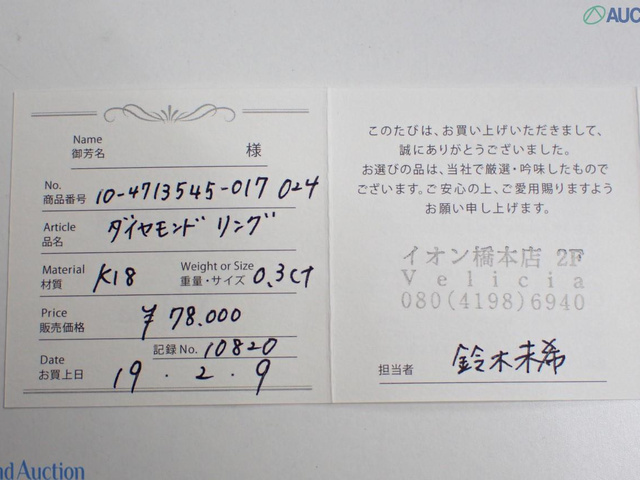 AUC
Name
御芳名 様
No.
商品番号 10-4713545-017 024
Article
品名 ダイヤモンド リング
Material
材質 K18
Weight or Size
重量・サイズ 0.3ct
Price
販売価格 ¥78.000
記録 No. 10820
Date
お買上日 19.2.9
このたびは、お買い上げいただきまして、
誠にありがとうございました。
お選びの品は、当社で厳選・吟味したもので
ございます。ご安心の上、ご愛用賜りますよう
お願い申し上げます。
イオン橋本店 2F
Velicia
080(4198)6940
担当者 鈴木未希
nd Auction